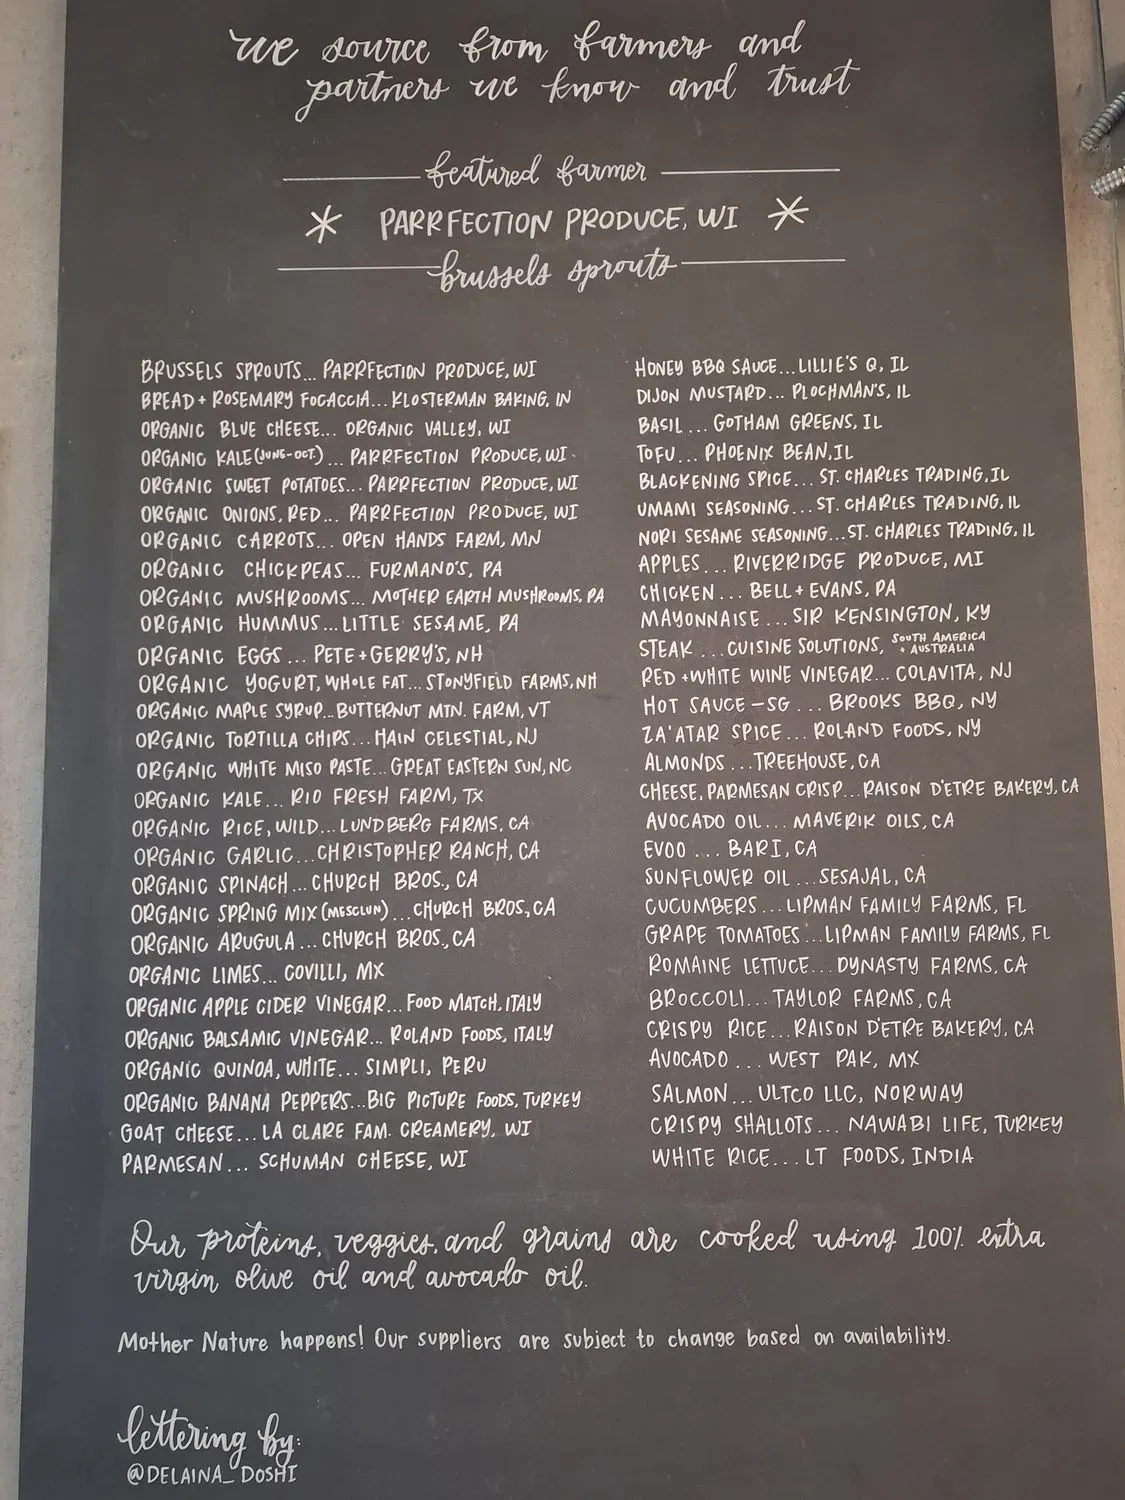 we source from farmers and
partners we know and trust
featured farmer
* PARRFECTION PRODUCE, WI *
brussels sprouts
BRUSSELS SPROUTS... PARRFECTION PRODUCE, WI
BREAD + ROSEMARY FOCACCIA... KLOSTERMAN BAKING, IN
ORGANIC BLUE CHEESE... ORGANIC VALLEY, WI
ORGANIC KALE (JUNE-OCT.) ... PARRFECTION PRODUCE, WI
ORGANIC SWEET POTATOES... PARRFECTION PRODUCE, WI
ORGANIC ONIONS, RED... PARRFECTION PRODUCE, WI
ORGANIC CARROTS... OPEN HANDS FARM, MN
ORGANIC CHICKPEAS... FURMANO'S, PA
ORGANIC MUSHROOMS... MOTHER EARTH MUSHROOMS, PA
ORGANIC HUMMUS... LITTLE SESAME, PA
ORGANIC EGGS ... PETE + GERRY'S, NH
ORGANIC YOGURT, WHOLE FAT... STONYFIELD FARMS, NH
ORGANIC MAPLE SYRUP... BUTTERNUT MTN. FARM, VT
ORGANIC TORTILLA CHIPS... HAIN CELESTIAL, NJ
ORGANIC WHITE MISO PASTE... GREAT EASTERN SUN, NC
ORGANIC KALE... RIO FRESH FARM, TX
ORGANIC RICE, WILD... LUNDBERG FARMS, CA
ORGANIC GARLIC... CHRISTOPHER RANCH, CA
ORGANIC SPINACH... CHURCH BROS., CA
ORGANIC SPRING MIX (MESCLUN) ... CHURCH BROS, CA
ORGANIC ARUGULA ... CHURCH BROS., CA
ORGANIC LIMES... COVILLI, MX
ORGANIC APPLE CIDER VINEGAR... FOOD MATCH, ITALY
ORGANIC BALSAMIC VINEGAR... ROLAND FOODS, ITALY
ORGANIC QUINOA, WHITE... SIMPLI, PERU
ORGANIC BANANA PEPPERS... BIG PICTURE FOODS, TURKEY
GOAT CHEESE... LA CLARE FAM. CREAMERY, WI
PARMESAN... SCHUMAN CHEESE, WI
HONEY BBQ SAUCE... LILLIE'S Q, IL
DIJON MUSTARD... PLOCHMAN'S, IL
BASIL ... GOTHAM GREENS, IL
TOFU... PHOENIX BEAN, IL
BLACKENING SPICE... ST. CHARLES TRADING, IL
UMAMI SEASONING... ST. CHARLES TRADING, IL
NORI SESAME SEASONING... ST. CHARLES TRADING, IL
APPLES... RIVERRIDGE PRODUCE, MI
CHICKEN... BELL + EVANS, PA
MAYONNAISE ... SIR KENSINGTON, KY
STEAK ... CUISINE SOLUTIONS, SOUTH AMERICA + AUSTRALIA
RED + WHITE WINE VINEGAR... COLAVITA, NJ
HOT SAUCE - SG ... BROOKS BBQ, NY
ZA'ATAR SPICE... ROLAND FOODS, NY
ALMONDS ... TREEHOUSE, CA
CHEESE, PARMESAN CRISP... RAISON D'ETRE BAKERY, CA
AVOCADO OIL... MAVERIK OILS, CA
EVOO ... BARI, CA
SUNFLOWER OIL ... SESAJAL, CA
CUCUMBERS... LIPMAN FAMILY FARMS, FL
GRAPE TOMATOES ... LIPMAN FAMILY FARMS, FL
ROMAINE LETTUCE... DYNASTY FARMS, CA
BROCCOLI... TAYLOR FARMS, CA
CRISPY RICE... RAISON D'ETRE BAKERY, CA
AVOCADO ... WEST PAK, MX
SALMON... ULTCO LLC, NORWAY
CRISPY SHALLOTS... NAWABI LIFE, TURKEY
WHITE RICE... LT FOODS, INDIA
Our proteins, veggies, and grains are cooked using 100% extra
virgin olive oil and avocado oil.
Mother Nature happens! Our suppliers are subject to change based on availability.
lettering by:
@DELAINA_DOSHI